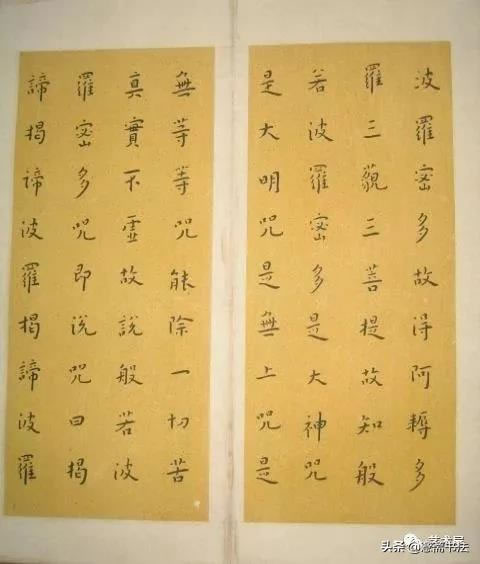 波羅密多故得阿耨多
羅三藐三菩提故知般
若波羅密多是大神咒
是大明咒是無上咒是
無等等咒能除一切苦
真實不虛故說般若波
羅密多咒即說咒曰揭
諦揭諦波羅揭諦波羅
头条